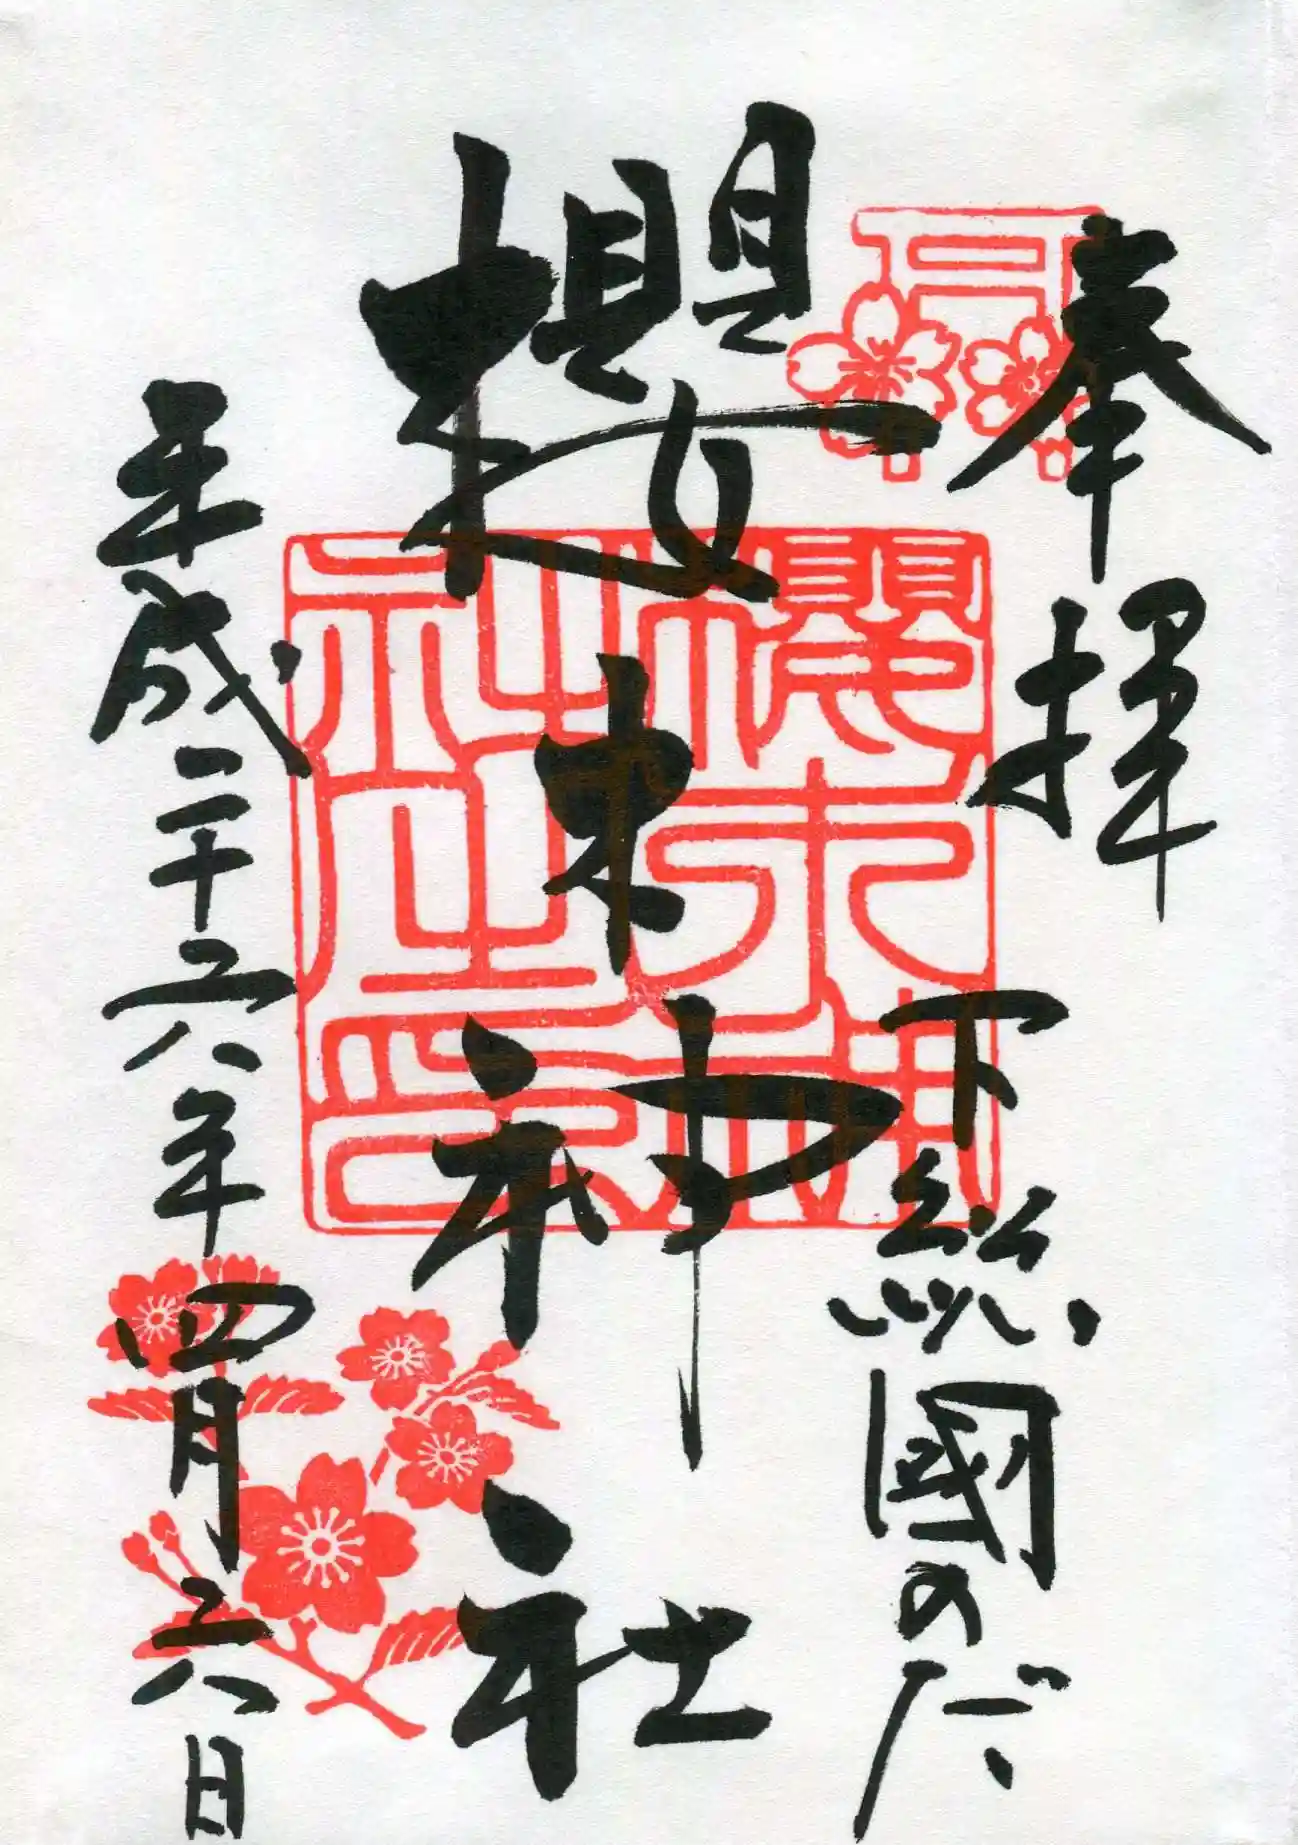 奉拝
下総國のだ
櫻木神社
櫻木神
社之印
平成二十六年四月六日